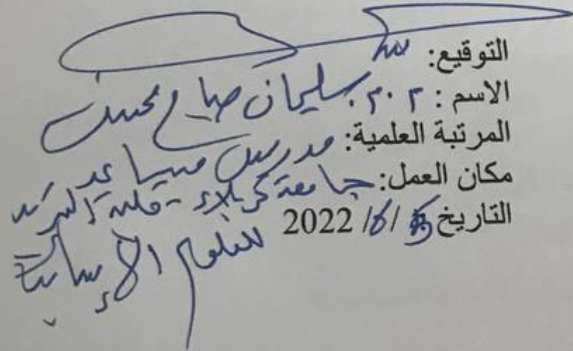 التوقيع:
الاسم: م.م. سليمان صباح محسن
المرتبة العلمية: مدرس مساعد
مكان العمل: جامعة كربلاء - كلية التربية
للعلوم الإنسانية
التاريخ / 6 / 2022